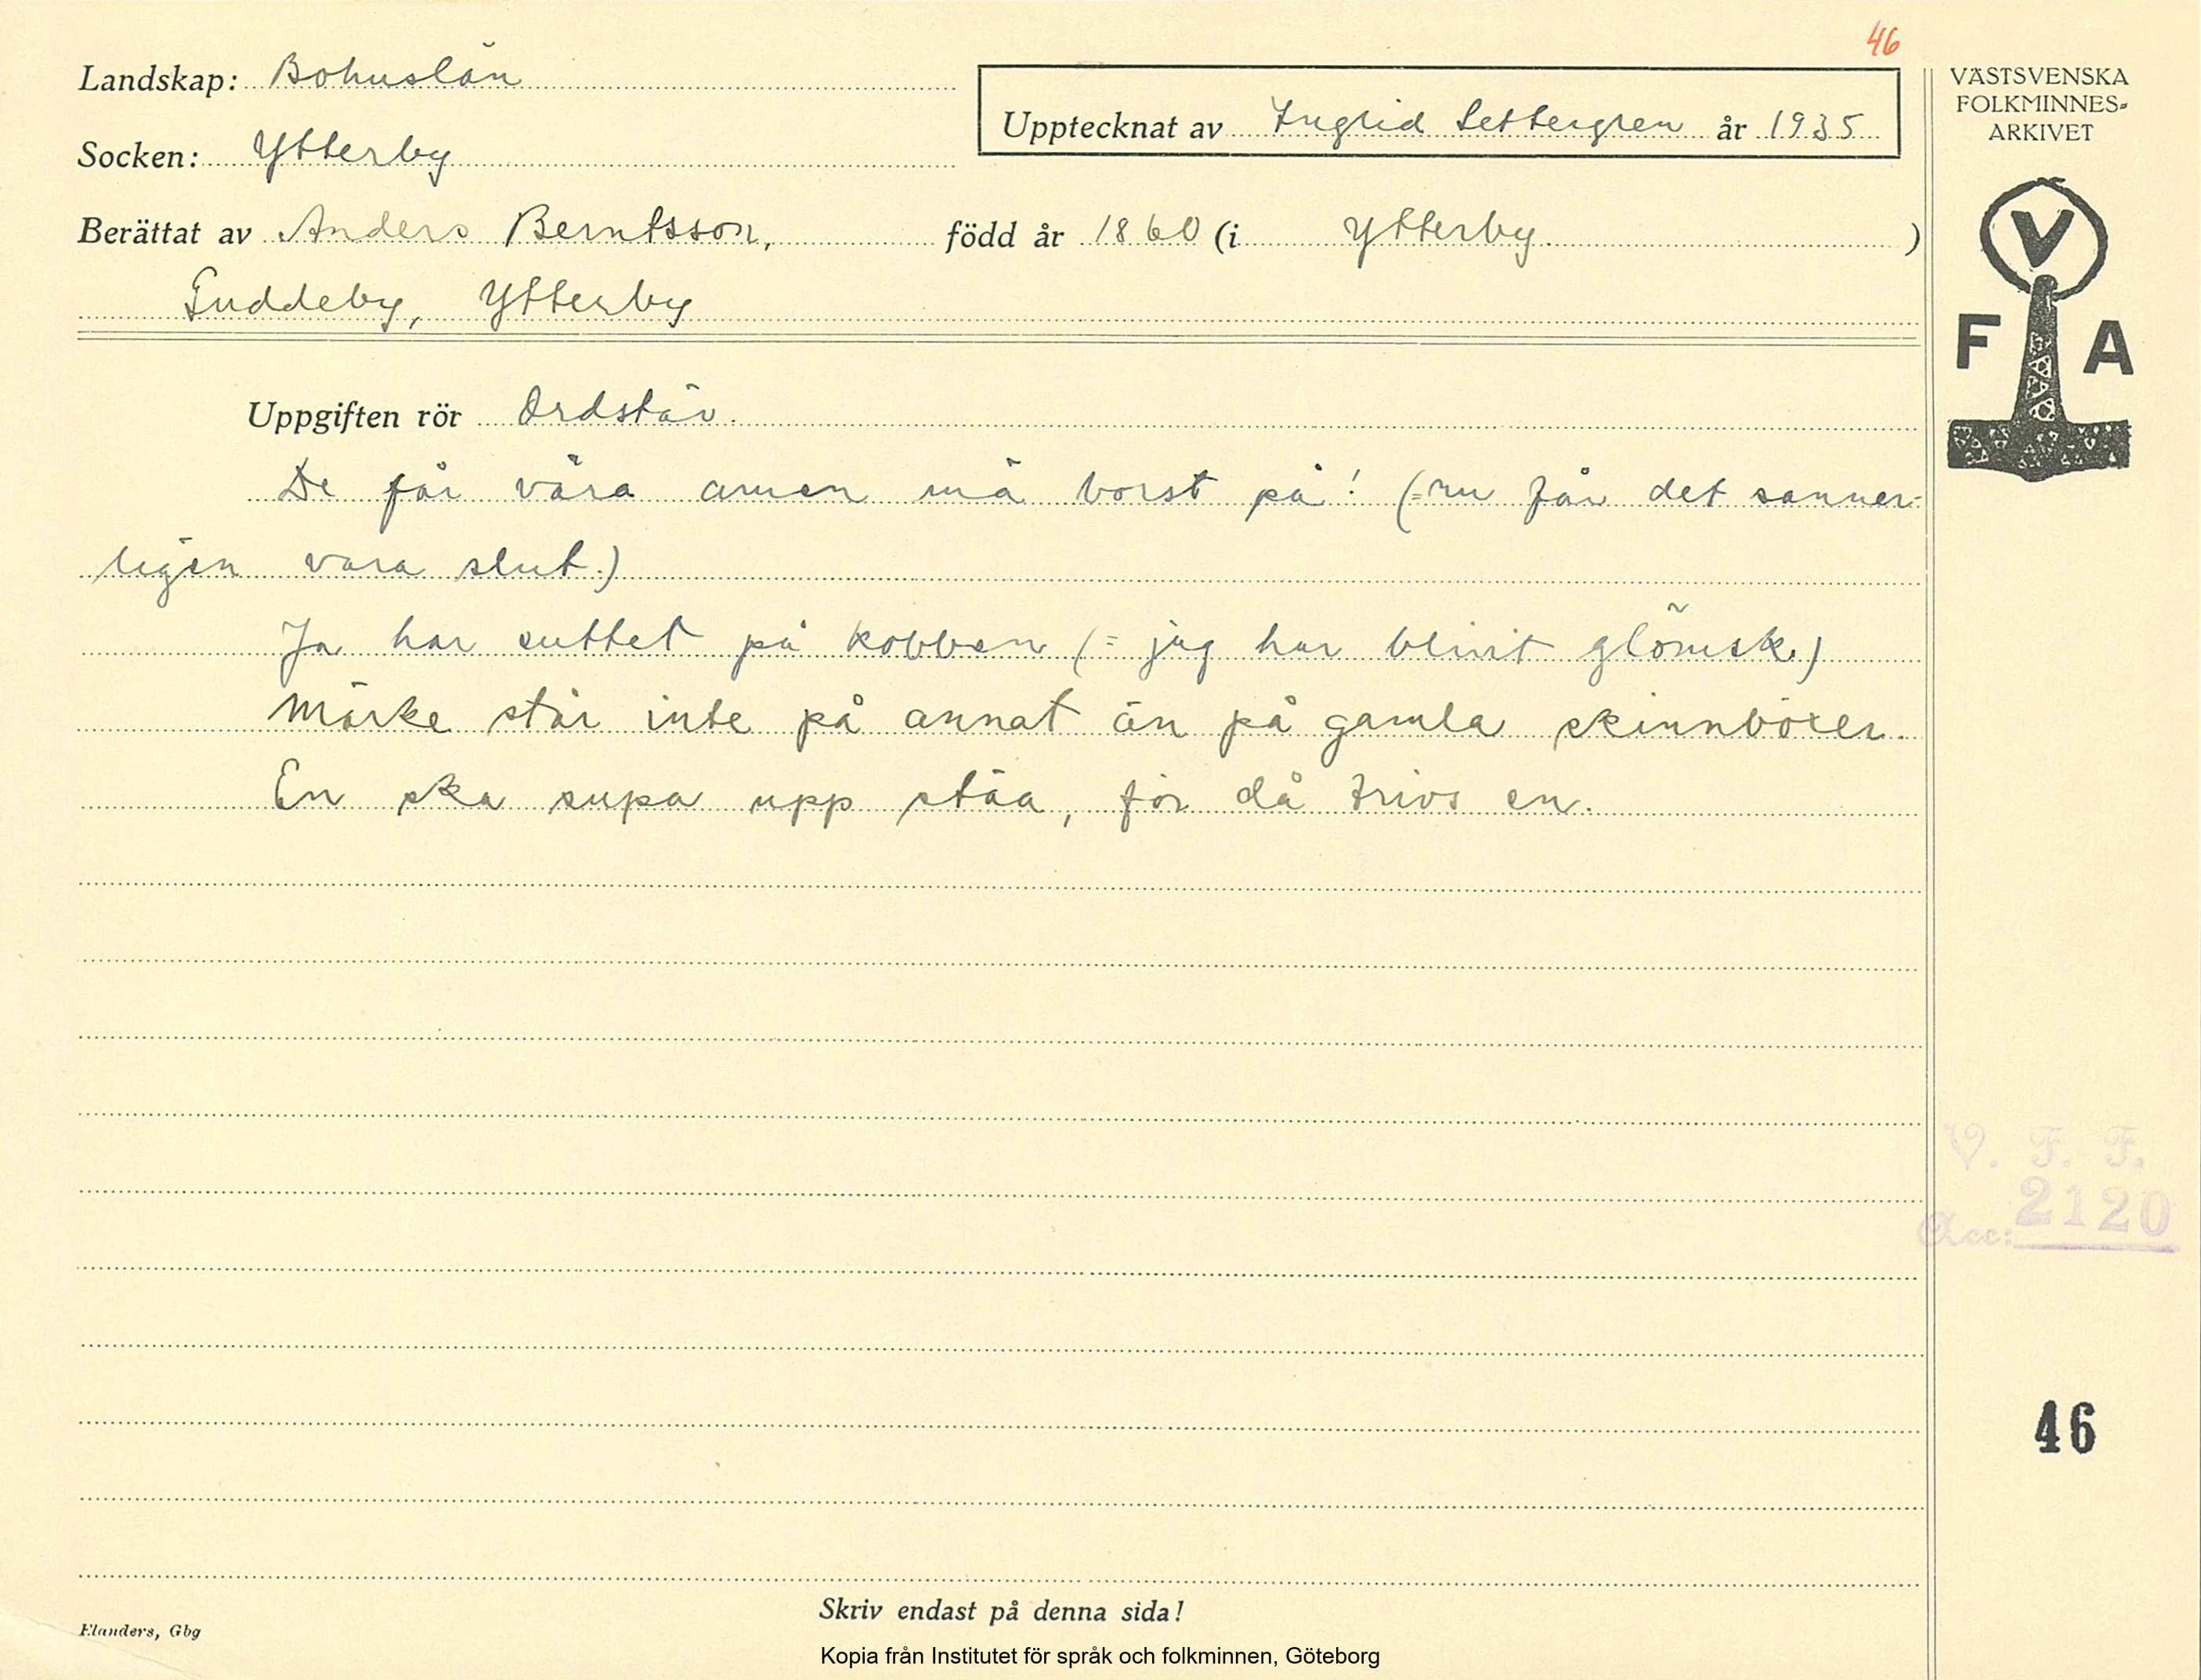 46
Landskap: Bohuslän
Upptecknat av Ingrid Settergren år 1935
VÄSTSVENSKA
FOLKMINNES-
ARKIVET
Socken: Ytterby
Berättat av Anders Berntsson, född år 1860 (i Ytterby )
Guddeby, Ytterby
V
F A
Uppgiften rör Ordstäv.
De får våra amen mä borst på! (=nu får det sanner-
ligen vara slut.)
Ja har suttet på kobben (= jag har blivit glömsk.)
Märke står inte på annat än på gamla skinnböxer.
En ska supa upp stäa, för då trivs en.
V. F. F.
Acc: 2120
46
Skriv endast på denna sida!
Flanders, Gbg
Kopia från Institutet för språk och folkminnen, Göteborg